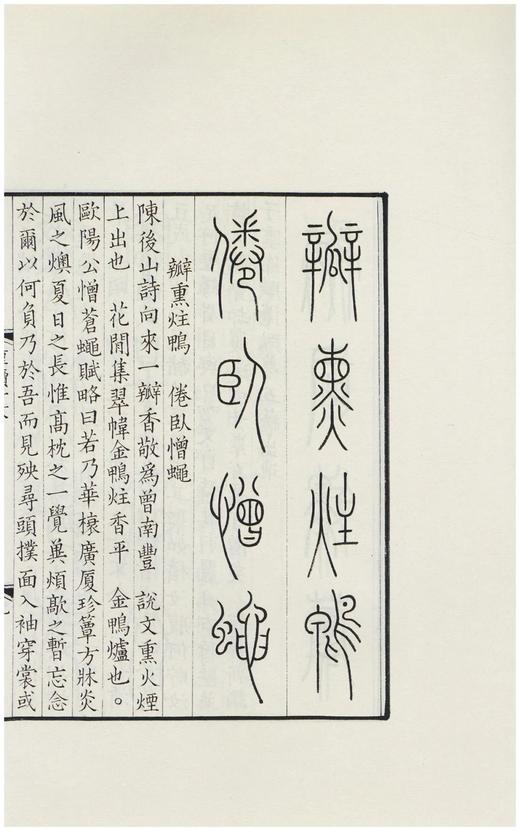 瓣熏炷鴨
倦臥憎蠅
瓣熏炷鴨　倦臥憎蠅
陳後山詩向來一瓣香敬爲曾南豐　說文熏火煙
上出也　花閒集翠幃金鴨炷香平　金鴨爐也。
歐陽公憎蒼蠅賦略曰若乃華榱廣厦珍簟方牀炎
風之燠夏日之長惟高枕之一覺兾煩歊之暫忘念
於爾以何負乃於吾而見殃尋頭撲面入袖穿裳或